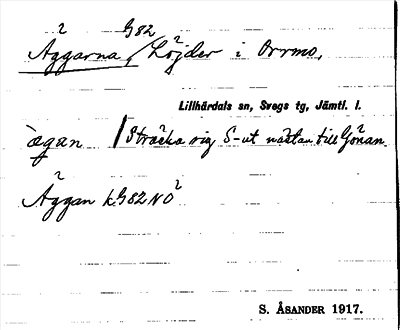 2 G82
Äggarna, Höjder i Orrmo.
Lillhärdals sn, Svegs tg, Jämtl. l.
ægan / Sträcka sig S-ut nästan till Gönan
Äggan k. G82 NO 2
S. ÅSANDER 1917.